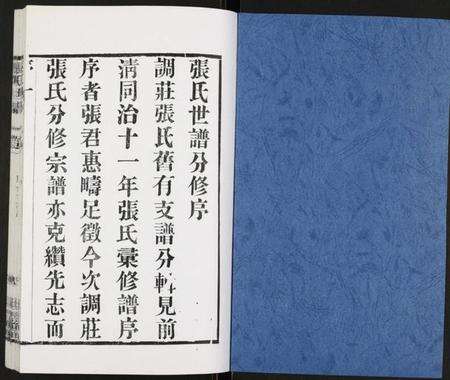 張氏世譜分修序
調莊張氏舊有支譜分轉見前
淸同治十一年張氏彙修譜序
序者張君惠疇足徵今次調莊
張氏分修宗譜亦克纘先志而
序 一